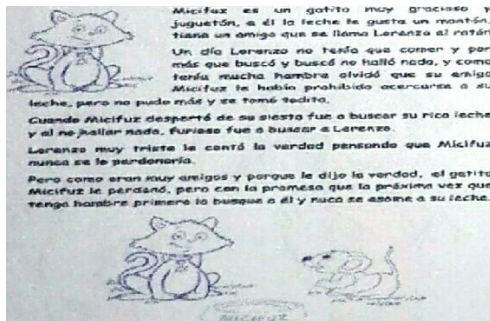 Micifuz es un gatito muy gracioso y
juguetón, a él la leche le gusta un montón,
tiene un amigo que se llama Lorenzo el ratón
Un día Lorenzo no tenía que comer y por
más que buscó y buscó no halló nada, y como
tenía mucha hambre olvidó que su amigo
Micifuz le había prohibido acercarse a su
leche, pero no pudo más y se tomó todita.
Cuando Micifuz despertó de su siesta fue a buscar su rica leche
y al no hallar nada, furioso fue a buscar a Lorenzo.
Lorenzo muy triste le contó la verdad pensando que Micifuz
nunca se lo perdonaría.
Pero como eran muy amigos y porque le dijo la verdad, el gatito
Micifuz le perdonó, pero con la promesa que la próxima vez que
tenga hambre primero lo busque a él y nuca se asome a su leche.
MICIFUZ